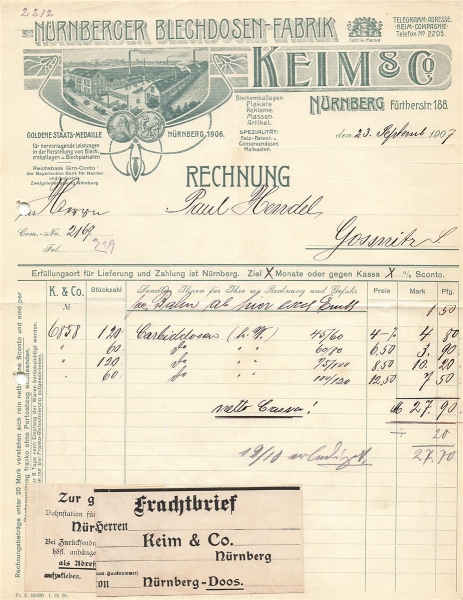 2212
NÜRNBERGER BLECHDOSEN-FABRIK
KEIM & Co.
Fabrik-Marke
TELEGRAMM-ADRESSE:
KEIM-COMPAGNIE
Telefon No 2205.
Blechemballagen
Plakate
Reklame-
Massen-
Artikel.
SPEZIALITÄT:
Falz-, Patent- u.
Conservendosen,
Melkasten.
NÜRNBERG Fürtherstr. 188.
GOLDENE STAATS-MEDAILLE
NÜRNBERG, 1906.
für hervorragende Leistungen
in der Herstellung von Blech-
emballagen u. Blechplakaten.
Reichsbank Giro-Conto
der Bayerischen Bank für Handel
und Industrie
Zweigniederlassung Nürnberg
den 23. September 1907
RECHNUNG
Herrn Paul Hendel,
Com.-No. 2169
Fol. 229
Gossnitz S.
Erfüllungsort für Lieferung und Zahlung ist Nürnberg. Ziel X Monate oder gegen Kassa X % Sconto.
K. & Co. Stückzahl Sandten Ihnen für Ihre w. Rechnung und Gefahr Preis Mark Pfg.
per Bahn ab hier
1 50
6858 120 Carbiddosen 45/60 4 - 4 80
60 do " " 60/80 6.50 3 90
120 do " " 75/100 8.50 10 20
60 do " " 100/120 12.50 7 50
netto Cassa! M 27.90.
20
19/10 27.70
Rechnungsbeträge unter 20 Mark verstehen sich rein netto ohne Sconto und sind per
Zur g
Bahnstation für
Nür
Bei Zurücksendung
höfl. anhängen
als Adress
aufzukleben.
Frachtbrief
Herren
Keim & Co.
Nürnberg
Nürnberg-Doos.